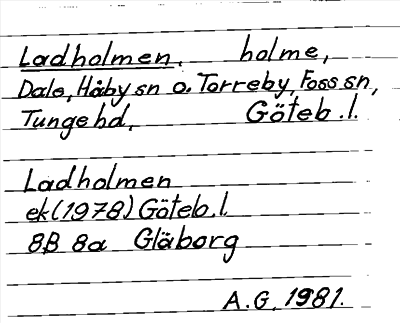 Ladholmen, holme,
Dale, Håby sn o. Torreby, Foss sn,
Tunge hd, Göteb. l.
Ladholmen
ek (1978) Göteb. l.
8B 8a Gläborg
A. G. 1981.